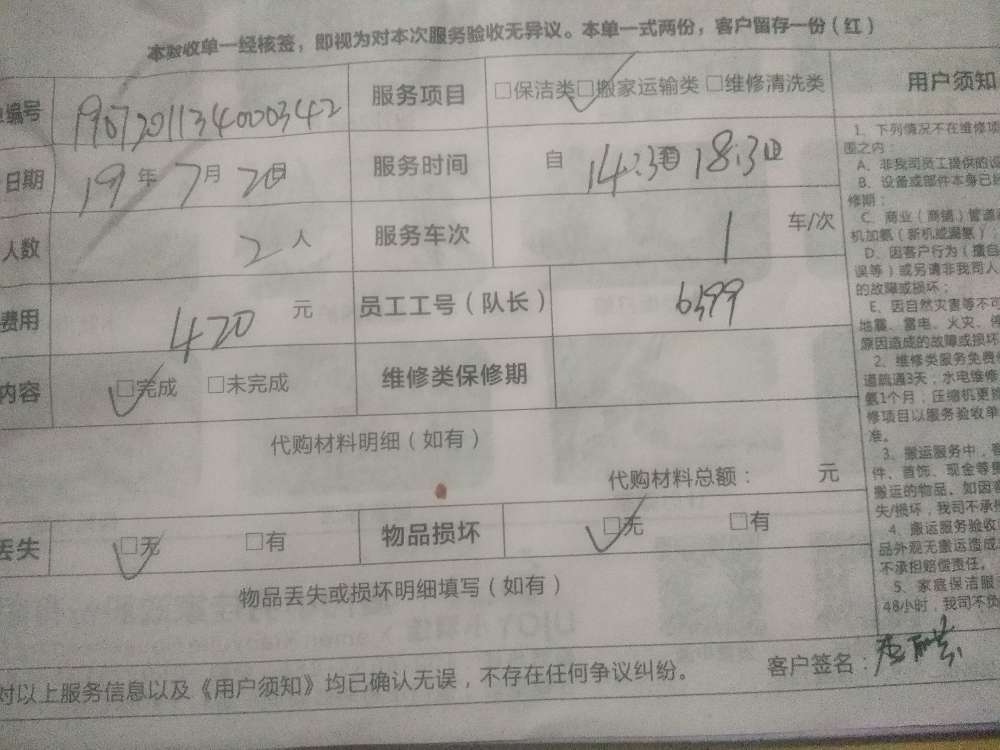 本验收单一经核签，即视为对本次服务验收无异议。本单一式两份，客户留存一份（红）
编号 1907201134000342 服务项目 □保洁类 □搬家运输类 □维修清洗类
日期 19年7月20日 服务时间 自 14:30 18:30止
人数 2人 服务车次 1 车/次
费用 420 元 员工工号（队长） 6399
内容 □完成 □未完成 维修类保修期
代购材料明细（如有）
代购材料总额： 元
丢失 □无 □有 物品损坏 □无 □有
物品丢失或损坏明细填写（如有）
对以上服务信息以及《用户须知》均已确认无误，不存在任何争议纠纷。 客户签名：
用户须知
1、下列情况不在维修项
围之内：
A、非我司员工提供的设
B、设备或部件本身已
修期；
C、商业（商铺）管道
机加氨（新机或漏氨）
D、因客户行为（擅自
误等）或另请非我司人
的故障或损坏；
E、因自然灾害等不可
地震、雷电、火灾、
原因造成的故障或损坏
2、维修类服务免费
道疏通3天；水电维修
氨1个月；压缩机更
修项目以服务验收单
准。
3、搬运服务中，
件、首饰、现金等
搬运的物品，如因
失/损坏，我司不承
4、搬运服务验收
品外观无搬运造成
不承担赔偿责任。
5、家庭保洁服
48小时，我司不负